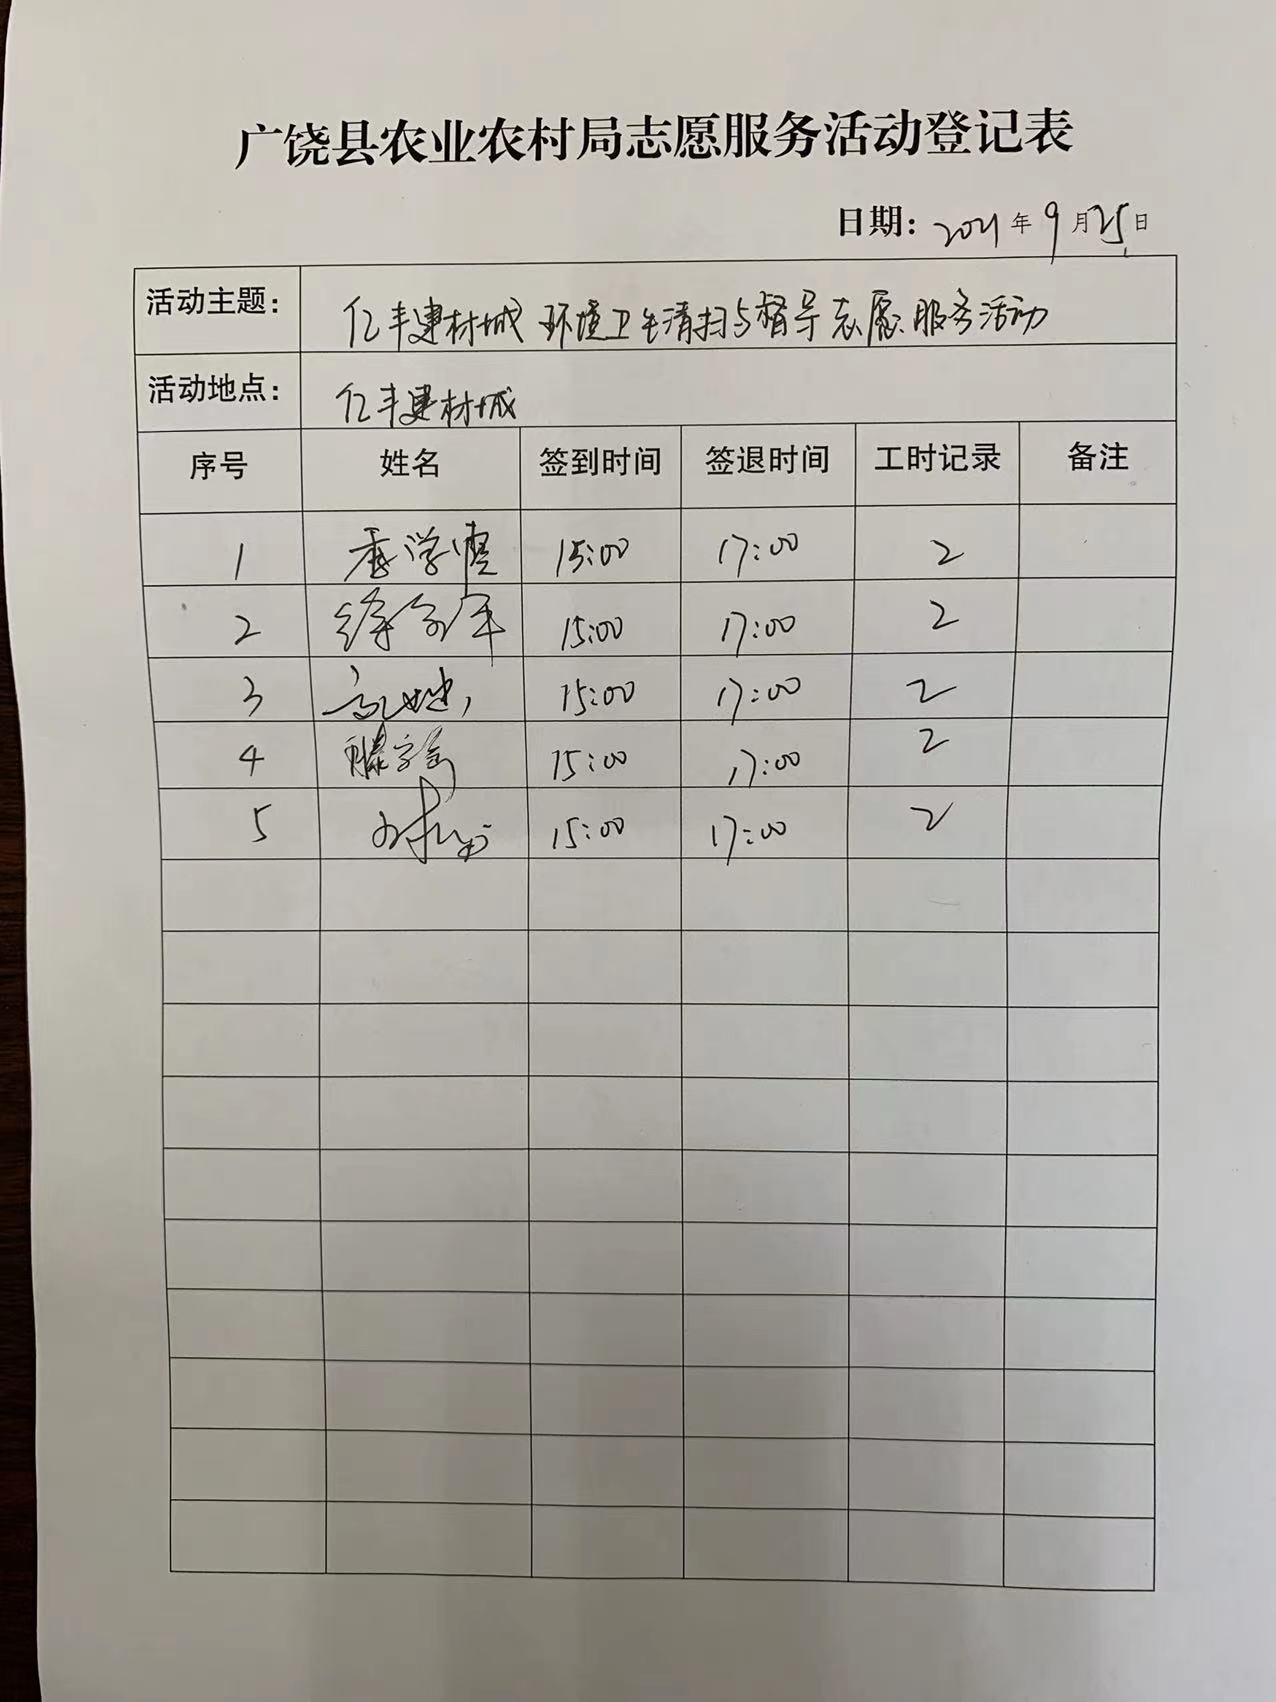 广饶县农业农村局志愿服务活动登记表
日期：2021年9月25日
活动主题： 亿丰建材城环境卫生清扫与督导志愿服务活动
活动地点： 亿丰建材城
序号 姓名 签到时间 签退时间 工时记录 备注
1 15:00 17:00 2
2 15:00 17:00 2
3 15:00 17:00 2
4 15:00 17:00 2
5 15:00 17:00 2